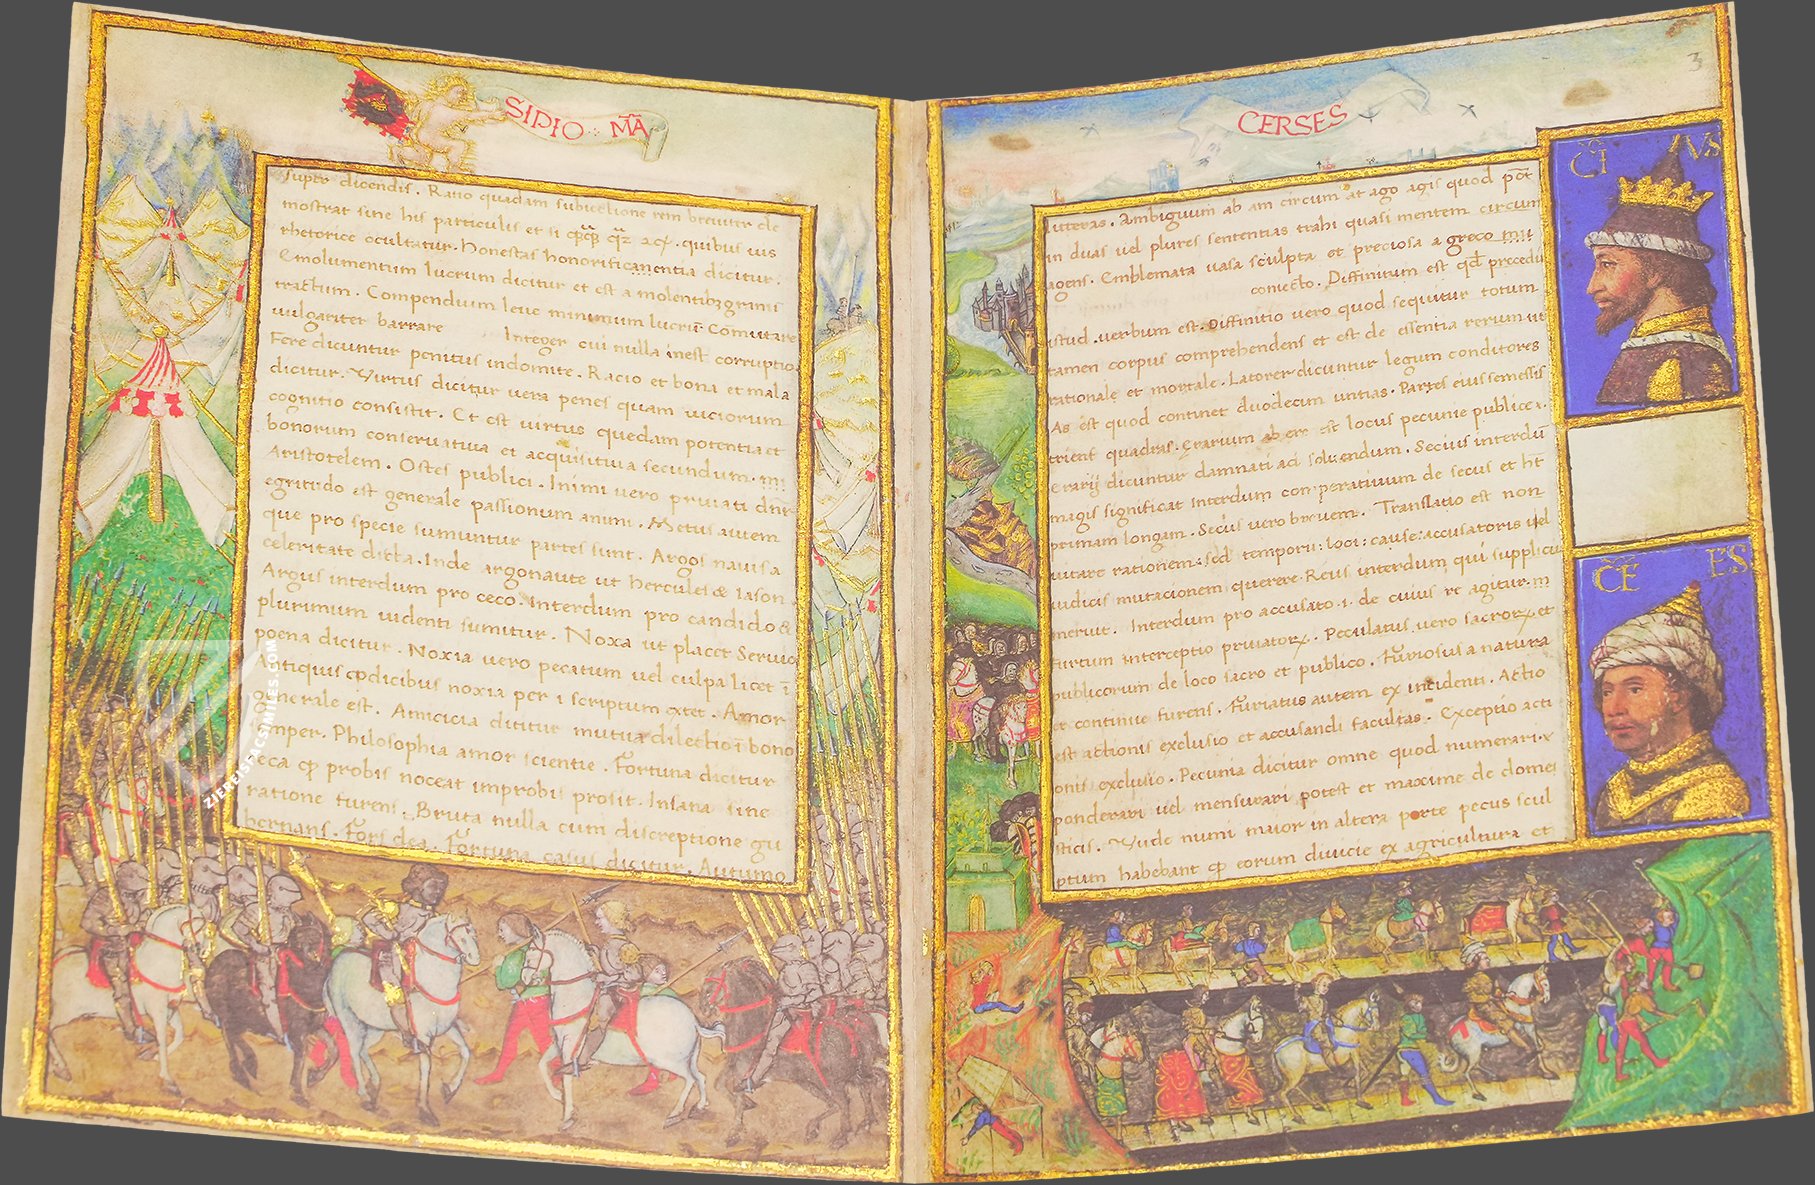 SIDIO : M̄A
super dicendis. Ratio quadam subuectione rem breuiter de
mostrat sine his particulis et si quibus uis
rhetorice ocultatur. Honestas honorificamentia dicitur.
Emolumentum lucrum dicitur et est a molentib3 grimis
tractum. Compendium leue minimum lucrū Comutare
uulgariter barrare Integer cui nulla inest corruptio
Fere dicuntur penitus indomite. Racio et bona et mala
dicitur. Virtus dicitur uera penes quam uiciorum
cognitio consistit. Et est uirtus quedam potentia et
bonorum conseruatiua et acquisitiua secundum
Aristotelem. Ostes publici. Inimi uero priuati dnr̄
egritudo est generale passionum animi. Metus autem
que pro specie sumuntur partes sunt. Argos nauis a
celeritate dicta. Inde argonaute ut hercules & Iason.
Argus interdum pro ceco. Interdum pro candido &
plurimum uidenti sumitur. Noxa ut placet Seruio
poena dicitur. Noxia uero pecatum uel culpa licet ī
Antiquis codicibus noxia per i scriptum extet. Amor
generale est. Amicicia dicitur mutua dilectio ī bono
semper. Philosophia amor scientie. Fortuna dicitur
ceca qp probis noceat improbis prosit. Insana sine
ratione furens. Bruta nulla cum discreptione gu
bernans. Fors dea. Fortuna casus dicitur. Autumo
CERSES
3
litteras. Ambiguum ab am circum at ago agis quod pōt
in duas uel plures sententias trahi quasi mentem circum
agens. Emblemata uasa sculpta et preciosa a greco
conuecto. Diffinitum est qd precedit
istud uerbum est. Diffinitio uero quod sequitur totum
tamen corpus comprehendens et est de essentia rerum ut
rationale et mortale. Latorer dicuntur legum conditores
As est quod continet duodecim untias. Partes eius semessis
trient quadras. Erarium ab ere est locus pecunie publice.
Erarij dicuntur damnati aci soluendum. Secius interdū
magis significat Interdum comperatiuum de secus et ht̄
primam longam. Secus uero breuem. Translatio est non
uitare rationem: sed temporis: loci: cause: accusatoris uel
iudicis mutacionem querere. Reus interdum qui supplicium
meruit. Interdum pro accusato .i. de cuius re agitur.
furtum interceptio priuatorz. Peculatus uero sacrorz et
publicorum de loco sacro et publico. Furiosus a natura
et continue furens. Furiatus autem ex incidenti. Actio
est actionis exclusio et accusandi facultas. Exceptio acti
onis exclusio. Pecunia dicitur omne quod numerari
ponderari uel mensurari potest et maxime de domes
sticis. Vnde numi maior in altera parte pecus scul
ptum habebant qp eorum diuicie ex agricultura et
CI VS
CE ES
ZIEREIS FACSIMILES.COM